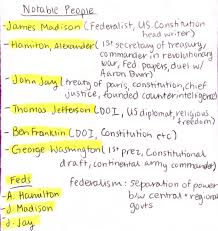 Notable People
- James Madison (Federalist, US Constitution
head writer)
- Hamilton, Alexander (1st secretary of treasury,
commander in revolutionary
war, Fed papers, duel w/
Aaron Burr)
- John Jay (treaty of paris, constitution, chief
justice, founded counterintelligence)
- Thomas Jefferson (DOI, US diplomat, religious
freedom)
- Ben Franklin (DOI, Constitution etc)
- George Washington (1st prez, Constitutional
draft, continental army commander)
Feds
- A. Hamilton
- J. Madison
- J. Jay
federalism: separation of power
b/w central + regional
govts